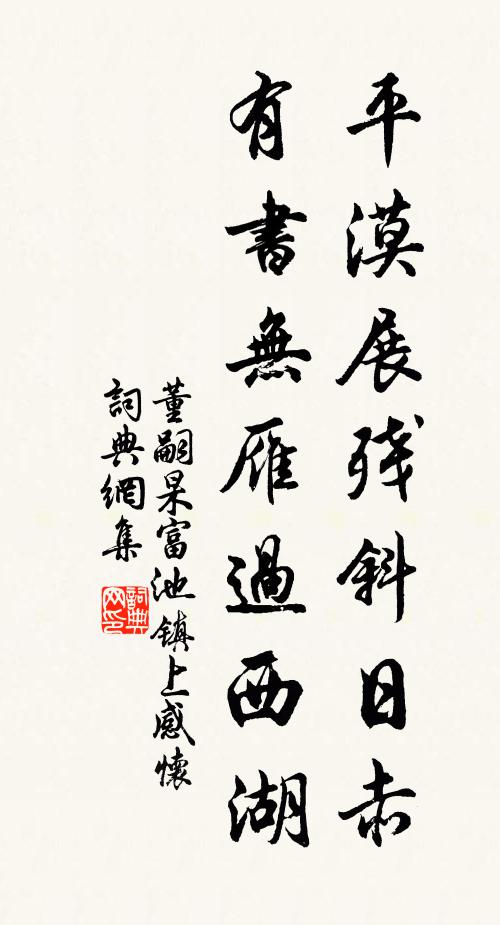 平漠展殘斜日赤
有書無雁過西湖
董嗣杲富池鎮上感懷
詞典網集
詞典网印